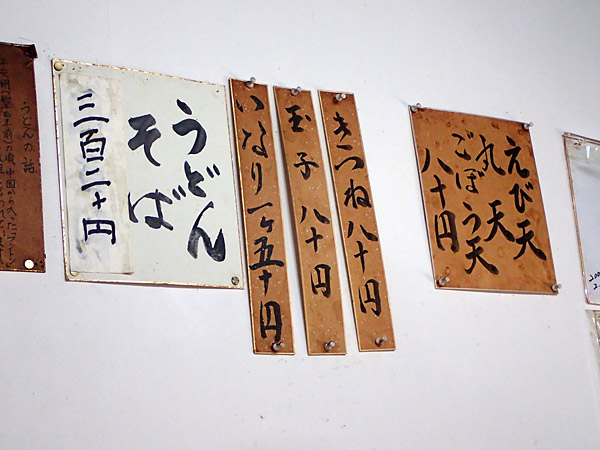 えび天
丸天
ごぼう天
八十円
きつね八十円
玉子八十円
いなり一ケ五十円
うどん
そば
三百二十円
うどんの話